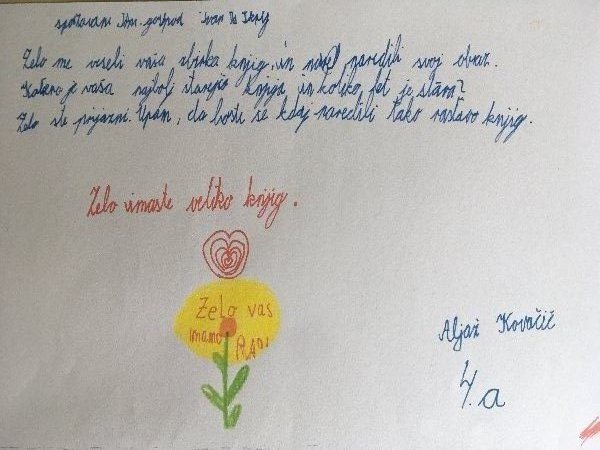 spoštovani gospod Ivan
Zelo me veseli vaša zbirka knjig. in naredili svoj obraz.
Katera je vaša najbolj starejša knjiga in koliko let je stara?
Zelo ste prijazni. Upam, da boste še kdaj naredili tako rastavo knjig.
Zelo imaste veliko knjig.
Zelo vas
imamo RADI
Aljaž Kovačič
4. a